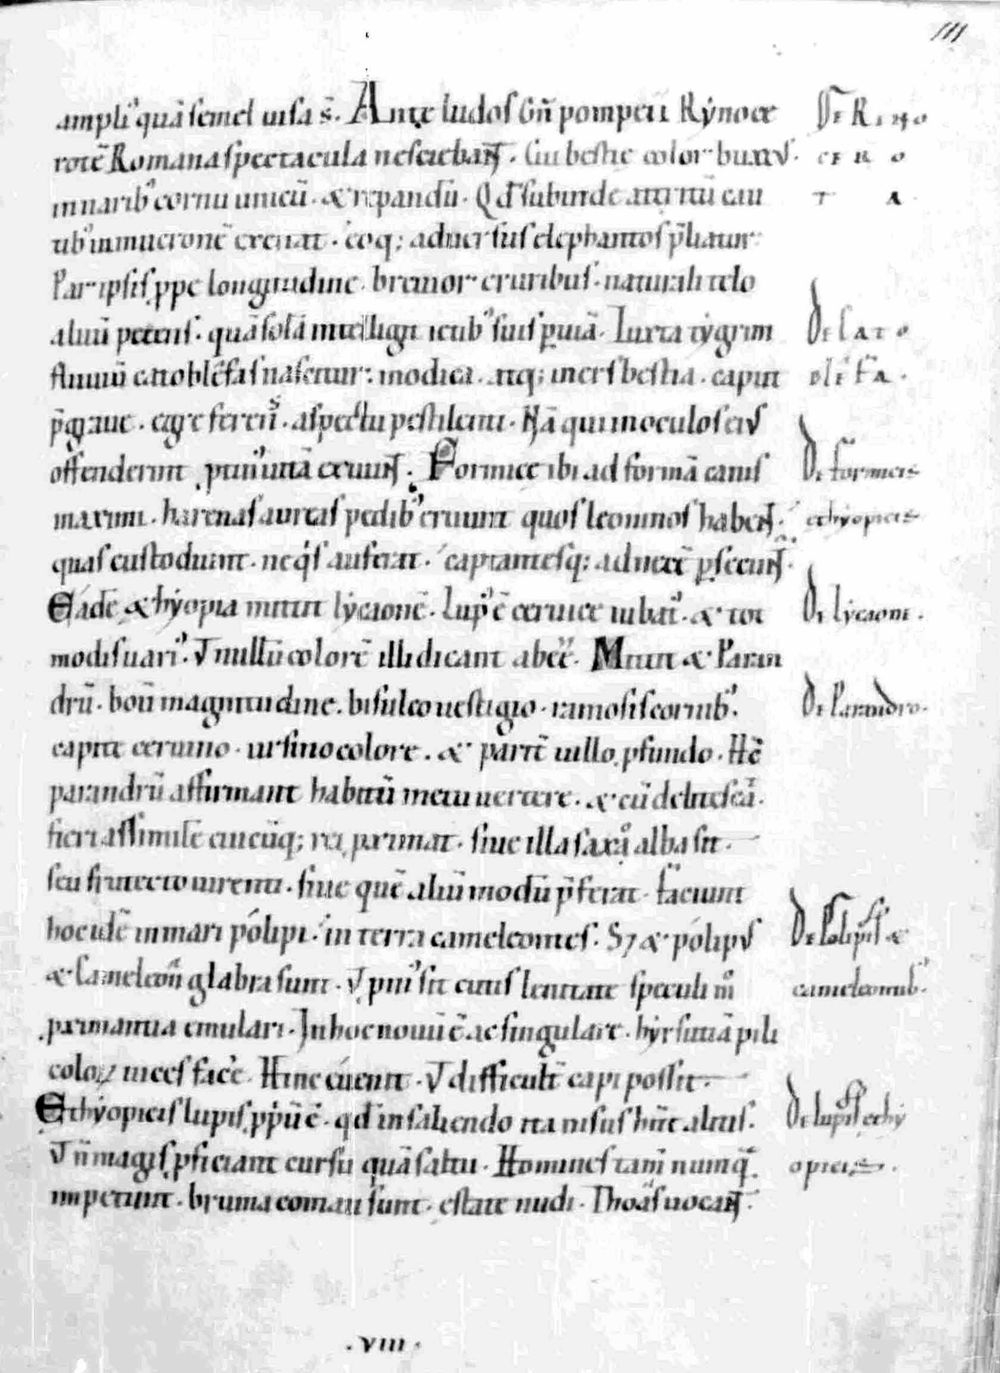 111
ampli' quā semel uisa s̄. Ante ludos Gñ pompeii Rẏnoce
rotē Romana spectacula nesciebant. Cui bestie color buxeus.
in narib' cornu unicū. & repandū. Qd̄ subinde attritū cau
tib' in mucronē excitat. eoq; aduersus elephantos p̄liatur.
Par ipsis ꝓpe longitudine. breuior cruribus. naturali telo
aluū petens. quā solā intelligit ictib' suis ꝑuiā. Iuxta tẏgrim
fluuiū catoblefas nascitur. modica. atq; iners bestia. caput
p̄graue. egre ferens. aspectu pestilenti. Nā qui in oculos eius
offenderint ꝓtin' uitā exuunt. Formice ibi ad formā canis
maximi. harenas aureas pedib' eruunt quos leoninos habent.
quas custodiunt. ne q's auferat. captantesq; ad necē ꝑsecuntur.
Eadē & hẏopia mittit lẏcaonē. Lup' ē ceruice iubat'. & tot
modis uari'. ut nullū colorē illi dicant abeē. Mittit & Paran
drū. boū magnitudine. bisulco uestigio. ramosis cornib'.
capite ceruino. ursino colore. & pariē uillo ꝓfundo. Hc̄
parandrū affirmant habitū metu uertere. & cū delitescat.
fieri assimilē cuicūq; rei ꝓximat. siue illa saxo alba sit.
seu frutecto uirenti. siue quē aliū modū p̄ferat. faciunt
hoc idē in mari pólipi. in terra cameleontes. S; & pólipus
& Cameleon glabra sunt. ut ꝓni' sit cutis lenitate speculi m̊
ꝓximantia emulari. In hoc nouū ē ac singulare. hẏrsutiā pili
coloꝝ uices facē. Hinc éuenit. ut difficult̄ capi possit.
Ethẏopicis lupis ꝓp̄ū ē. qd̄ in saliendo ita nisus hn̄t alitis.
ut n̄ magis ꝓficiant cursu quā saltu. Homines tam̄ numq̄
impetunt. bruma comati sunt. estate nudi. Thoas uocant.
De Rino
cero
ta
De Cato
blefa.
De formicis
ethẏopicis
De lẏcaone.
De Parandro.
De Polipis &
cameleontib'.
De lupis ethẏ
opicis.
.viii.